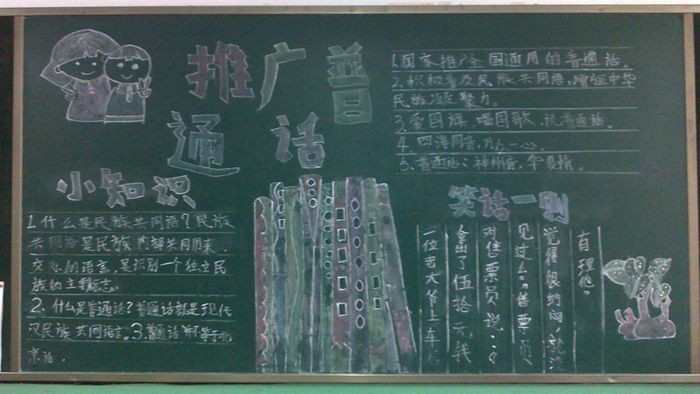 推广普
通话
1.国家推广全国通用的普通话。
2.积极普及民族共同语,增强中华
民族凝聚力。
3.爱国旗,唱国歌,说普通话。
4.四海同音,万众一心。
5.普通话:神州音,华夏情。
小知识
1.什么是民族共同语?民族
共同语是民族内部共同用来
交际的语言,是识别一个独立民
族的主要标志。
2.什么是普通话?普通话就是现代
汉民族共同语言。3.普通话不等于北
京话。
笑话一则
一位老大爷上车
拿出了伍拾元钱
对售票员说:
见过么。售票员
觉得很纳闷,就没
有理他。